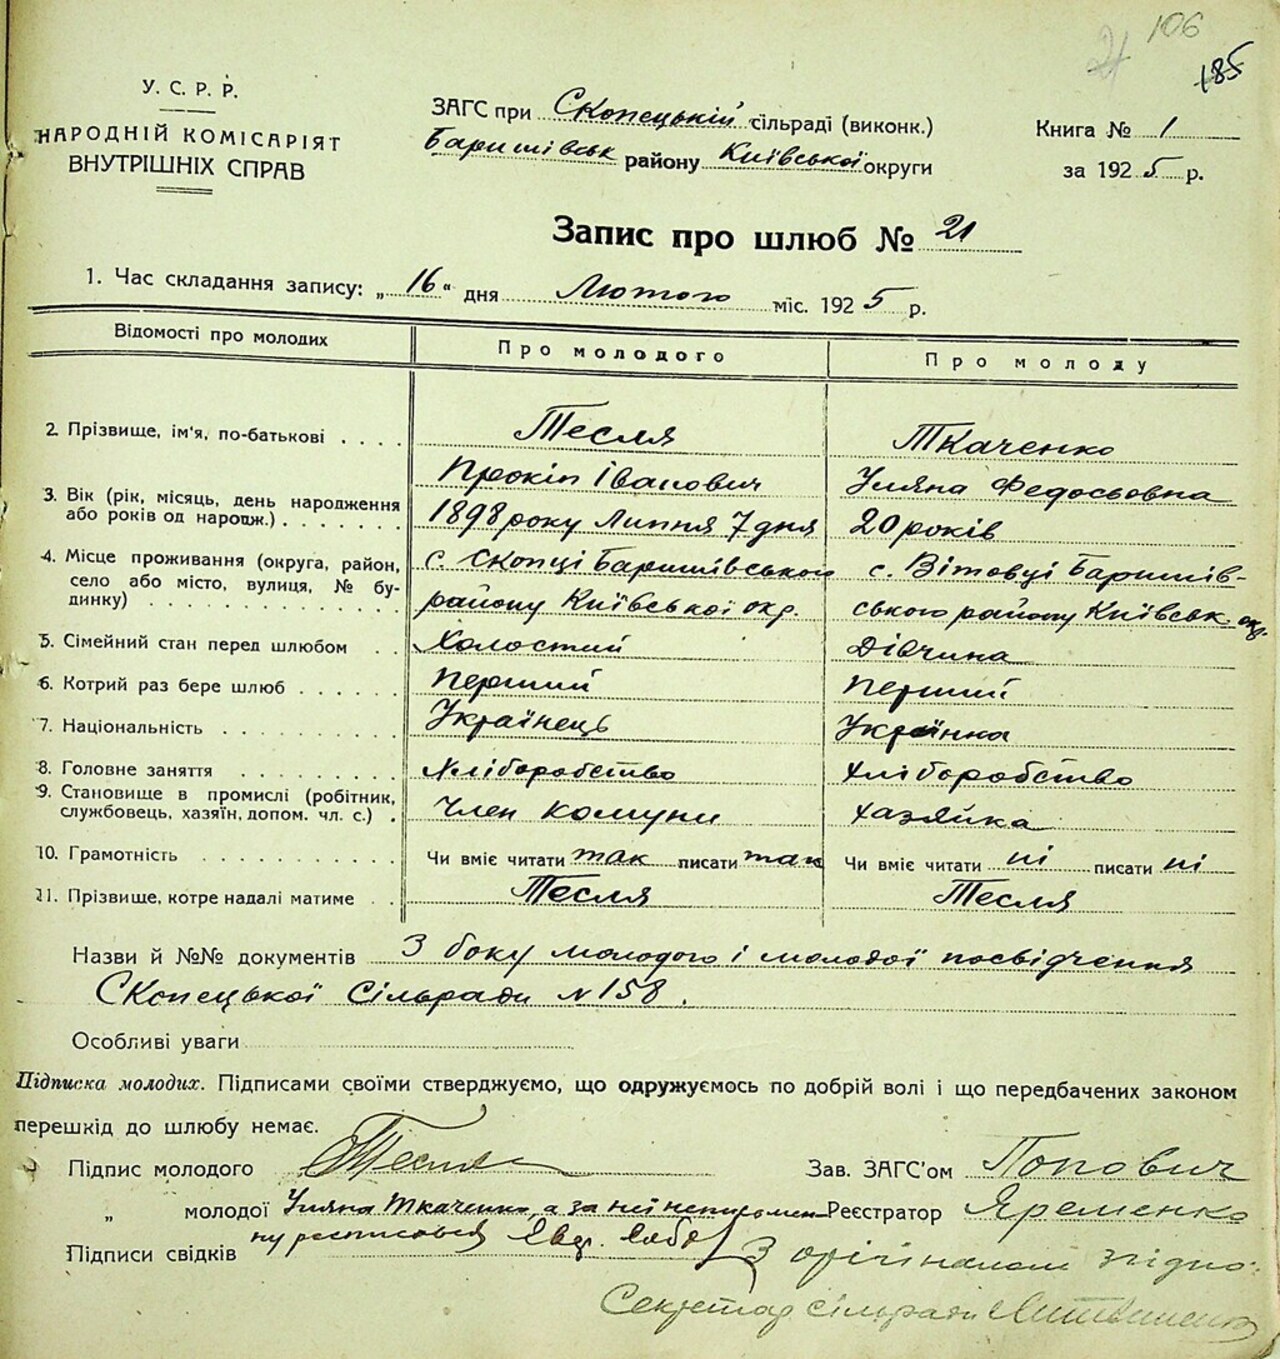 106
21
185
У. С. Р. Р.
НАРОДНІЙ КОМІСАРІЯТ
ВНУТРІШНІХ СПРАВ
ЗАГС при Скопецькій сільраді (виконк.)
Баришівськ району Київської округи
Книга № 1
за 1925 р.
Запис про шлюб № 21
1. Час складання запису: „16" дня Лютого міс. 1925 р.
Відомості про молодих
Про молодого
Про молоду
2. Прізвище, ім'я, по-батькові . . . .
Тесля
Прокіп Іванович
Ткаченко
Уляна Федосьовна
3. Вік (рік, місяць, день народження
або років од народж.) . . . . . . .
1898 року Липня 7 дня
20 років
4. Місце проживання (округа, район,
село або місто, вулиця, № бу-
динку) . . . . . . . . . . . . . .
с. Скопці Баришівського
району Київської окр.
с. Вітовці Баришів-
ського району Київськ. окр.
5. Сімейний стан перед шлюбом . .
Холостий
Дівчина
6. Котрий раз бере шлюб . . . . . .
Перший
Перший
7. Національність . . . . . . . . . .
Українець
Українка
8. Головне заняття . . . . . . . . .
Хліборобство
Хліборобство
9. Становище в промислі (робітник,
службовець, хазяїн, допом. чл. с.) .
Член комуни
Хазяйка
10. Грамотність . . . . . . . . . . .
Чи вміє читати так писати так
Чи вміє читати ні писати ні
11. Прізвище, котре надалі матиме . .
Тесля
Тесля
Назви й №№ документів З боку молодого і молодої посвідчення
Скопецької Сільради N 158.
Особливі уваги
Підписка молодих. Підписами своїми стверджуємо, що одружуємось по добрій волі і що передбачених законом
перешкід до шлюбу немає.
Підпис молодого Тесля
Зав. ЗАГС'ом Попович
„ молодої Уляна Ткаченко, а за неї неписьмен
Реєстратор Яременко
ну росписався
Підписи свідків
З орігіналом згідно:
Секретар сільради